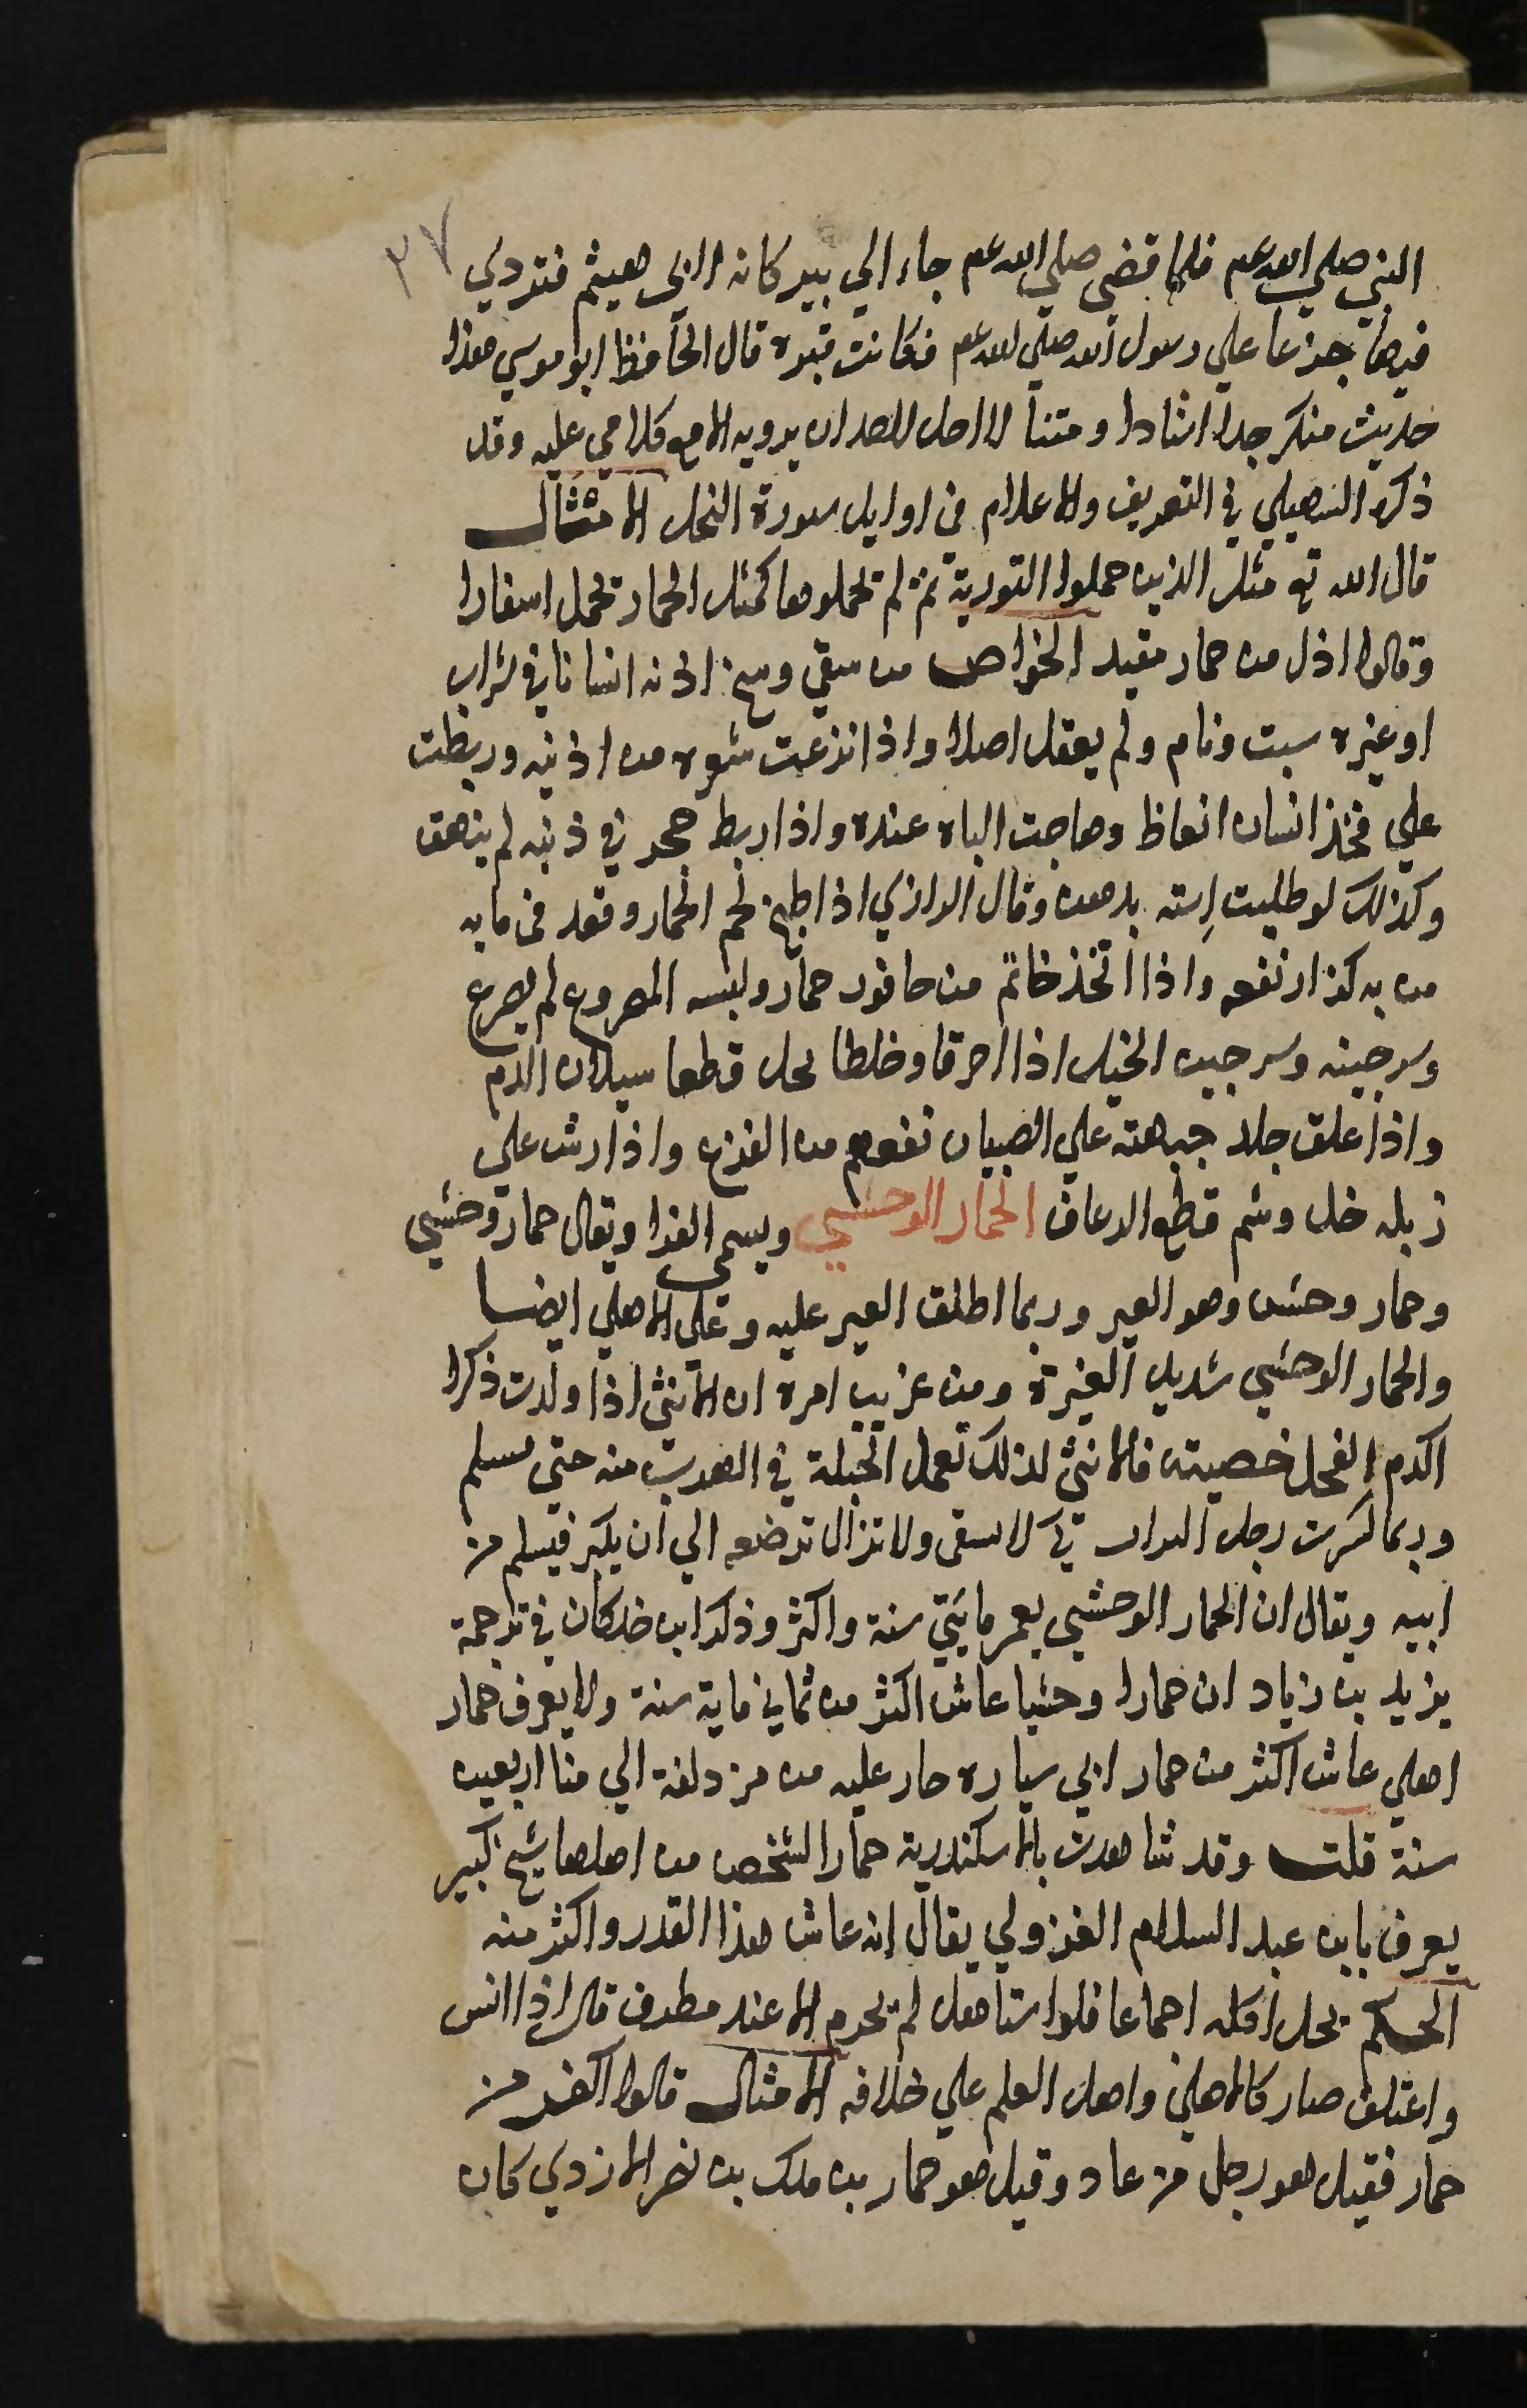 ٣٧
النبي صلي الله عم فلما قضي صلي الله عم جاء الي بير كانه لابي هيثم فتردي
فيها جزعا علي رسول الله صلي الله عم فكانت قبره قال الحافظ ابو موسي هذا
حديث منكر جدا اسنادا ومتنا لا احل لاحد ان يرويه الا مع كلامي عليه وقد
ذكره السهيلي في التعريف والاعلام في اوايل سورة النحل الامثال
قال الله تع مثل الذين حملوا التورية ثم لم يحملوها كمثل الحمار يحمل اسفارا
وقالوا اذل من حمار مقيد الخواص من سقي وسخ اذنه انسانا في شراب
او غيره سبت ونام ولم يعقل اصلا واذا نزعت شعره من اذنيه وربطت
علي فخذ انسان انعاظ وهاجت الباه عنده واذا ربط حجر في ذنبه لم ينهق
وكذلك لو طليت إسته بدهن وقال الرازي اذا طبخ لحم الحمار وقعد في مايه
من به كزاز نفعه واذا اتخذ خاتم من حافر حمار ولبسه المصروع لم يصرع
وسرجينه وسرجين الخيل اذا احرقا وخلطا بخل قطعا سيلان الدم
واذا علق جلد جبهته علي الصبيان نفعهم من الفزع واذا رش علي
زبله خل وشم قطع الرعاف الحمار الوحشي ويسمي الفرا ويقال حمار وحشي
وحمار وحش وهو العير وربما اطلق العير عليه وعلي الاهلي ايضا
والحمار الوحشي شديد الغيرة ومن غريب امره ان الانثي اذا ولدت ذكرا
اكدم الفحل خصيته فالانثي لذلك تعمل الحيلة في الهرب منه حتي يسلم
وربما كسرت رجل التولب كي لا يسقى ولا تزال ترضعه الي ان يكبر فيسلم من
ابيه ويقال ان الحمار الوحشي يعمر مايتي سنة واكثر وذكر ابن خلكان في ترجمة
يزيد بن زياد ان حمارا وحشيا عاش اكثر من ثماني ماية سنة ولا يعرف حمار
اهلي عاش اكثر من حمار ابي سياره حار عليه من مزدلفة الي منا اربعين
سنة قلت وقد شاهدت بالاسكندرية حمارا لشخص من اهلها شيخ كبير
يعرف بابن عبد السلام الغزولي يقال انه عاش هذا القدر واكثر منه
الحكم يحل اكله اجماعا فلو استاهل لم يحرم الا عند مطرف قال اذا انس
واعتلف صار كالاهلي واهل العلم علي خلافه الامثال قالوا اكفر من
حمار فقيل هو رجل من عاد وقيل هو حمار بن ملك بن نصر الازدي كان